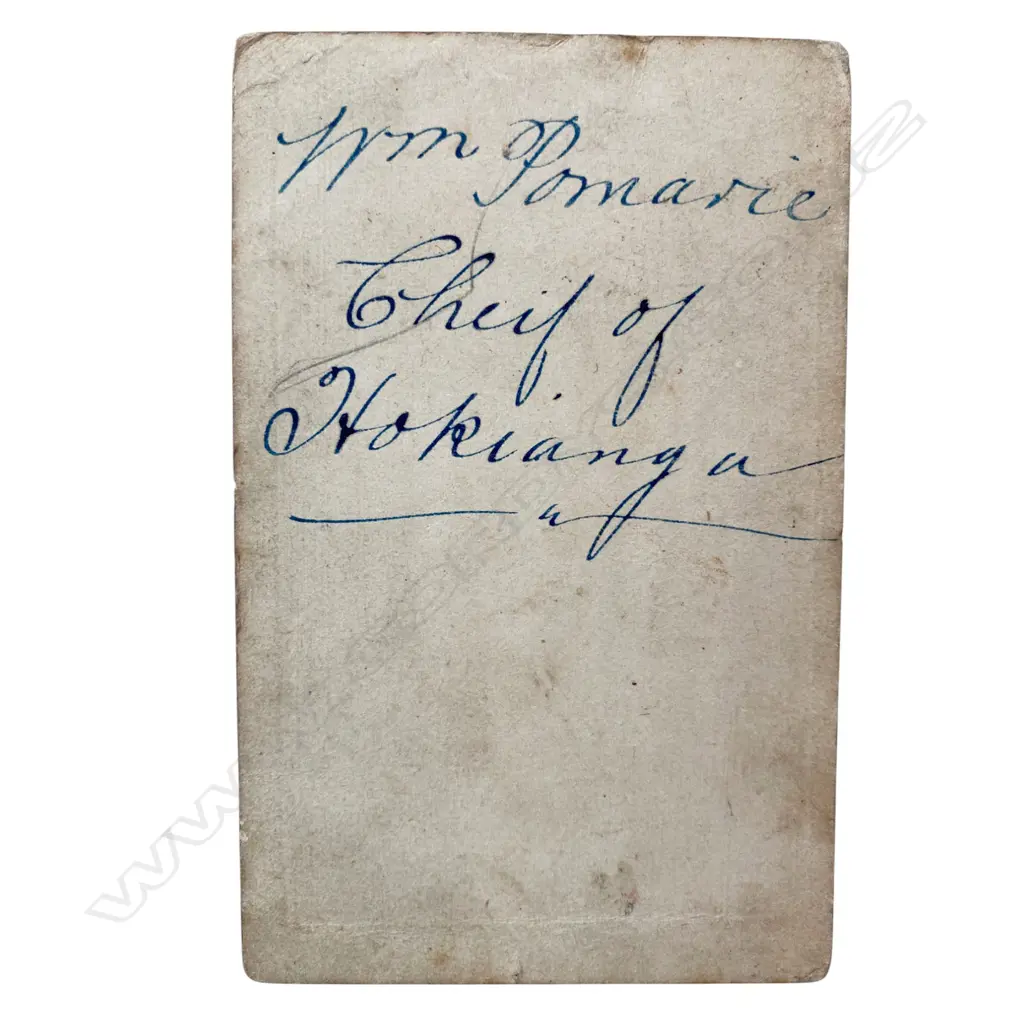 Wm Pomarie
Cheif of
Hokianga